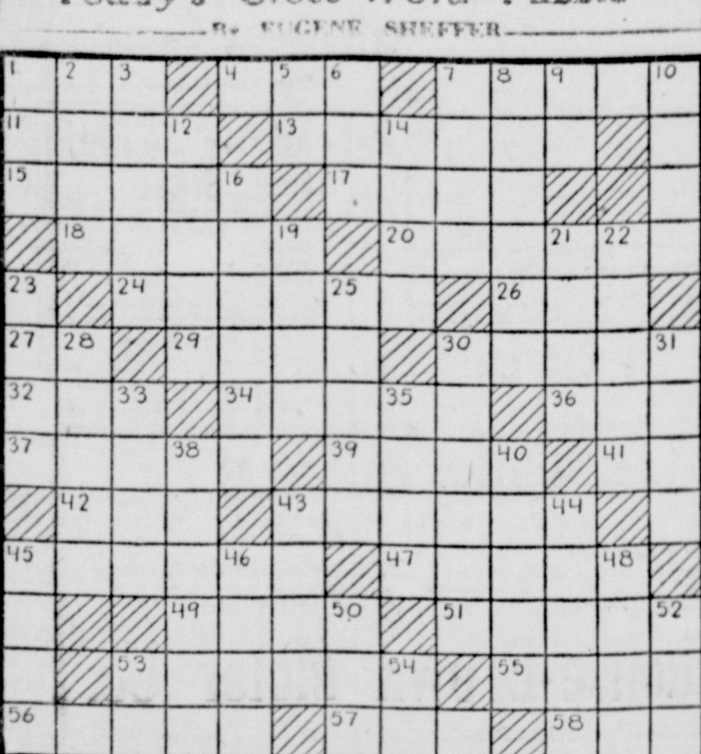 Today's Cross Word Puzzle
By EUGENE SHEFFER
1 2 3 4 5 6 7 8 9 10
11 12 13 14
15 16 17
18 19 20 21 22
23 24 25 26
27 28 29 30 31
32 33 34 35 36
37 38 39 40 41
42 43 44
45 46 47 48
49 50 51 52
53 54 55
56 57 58